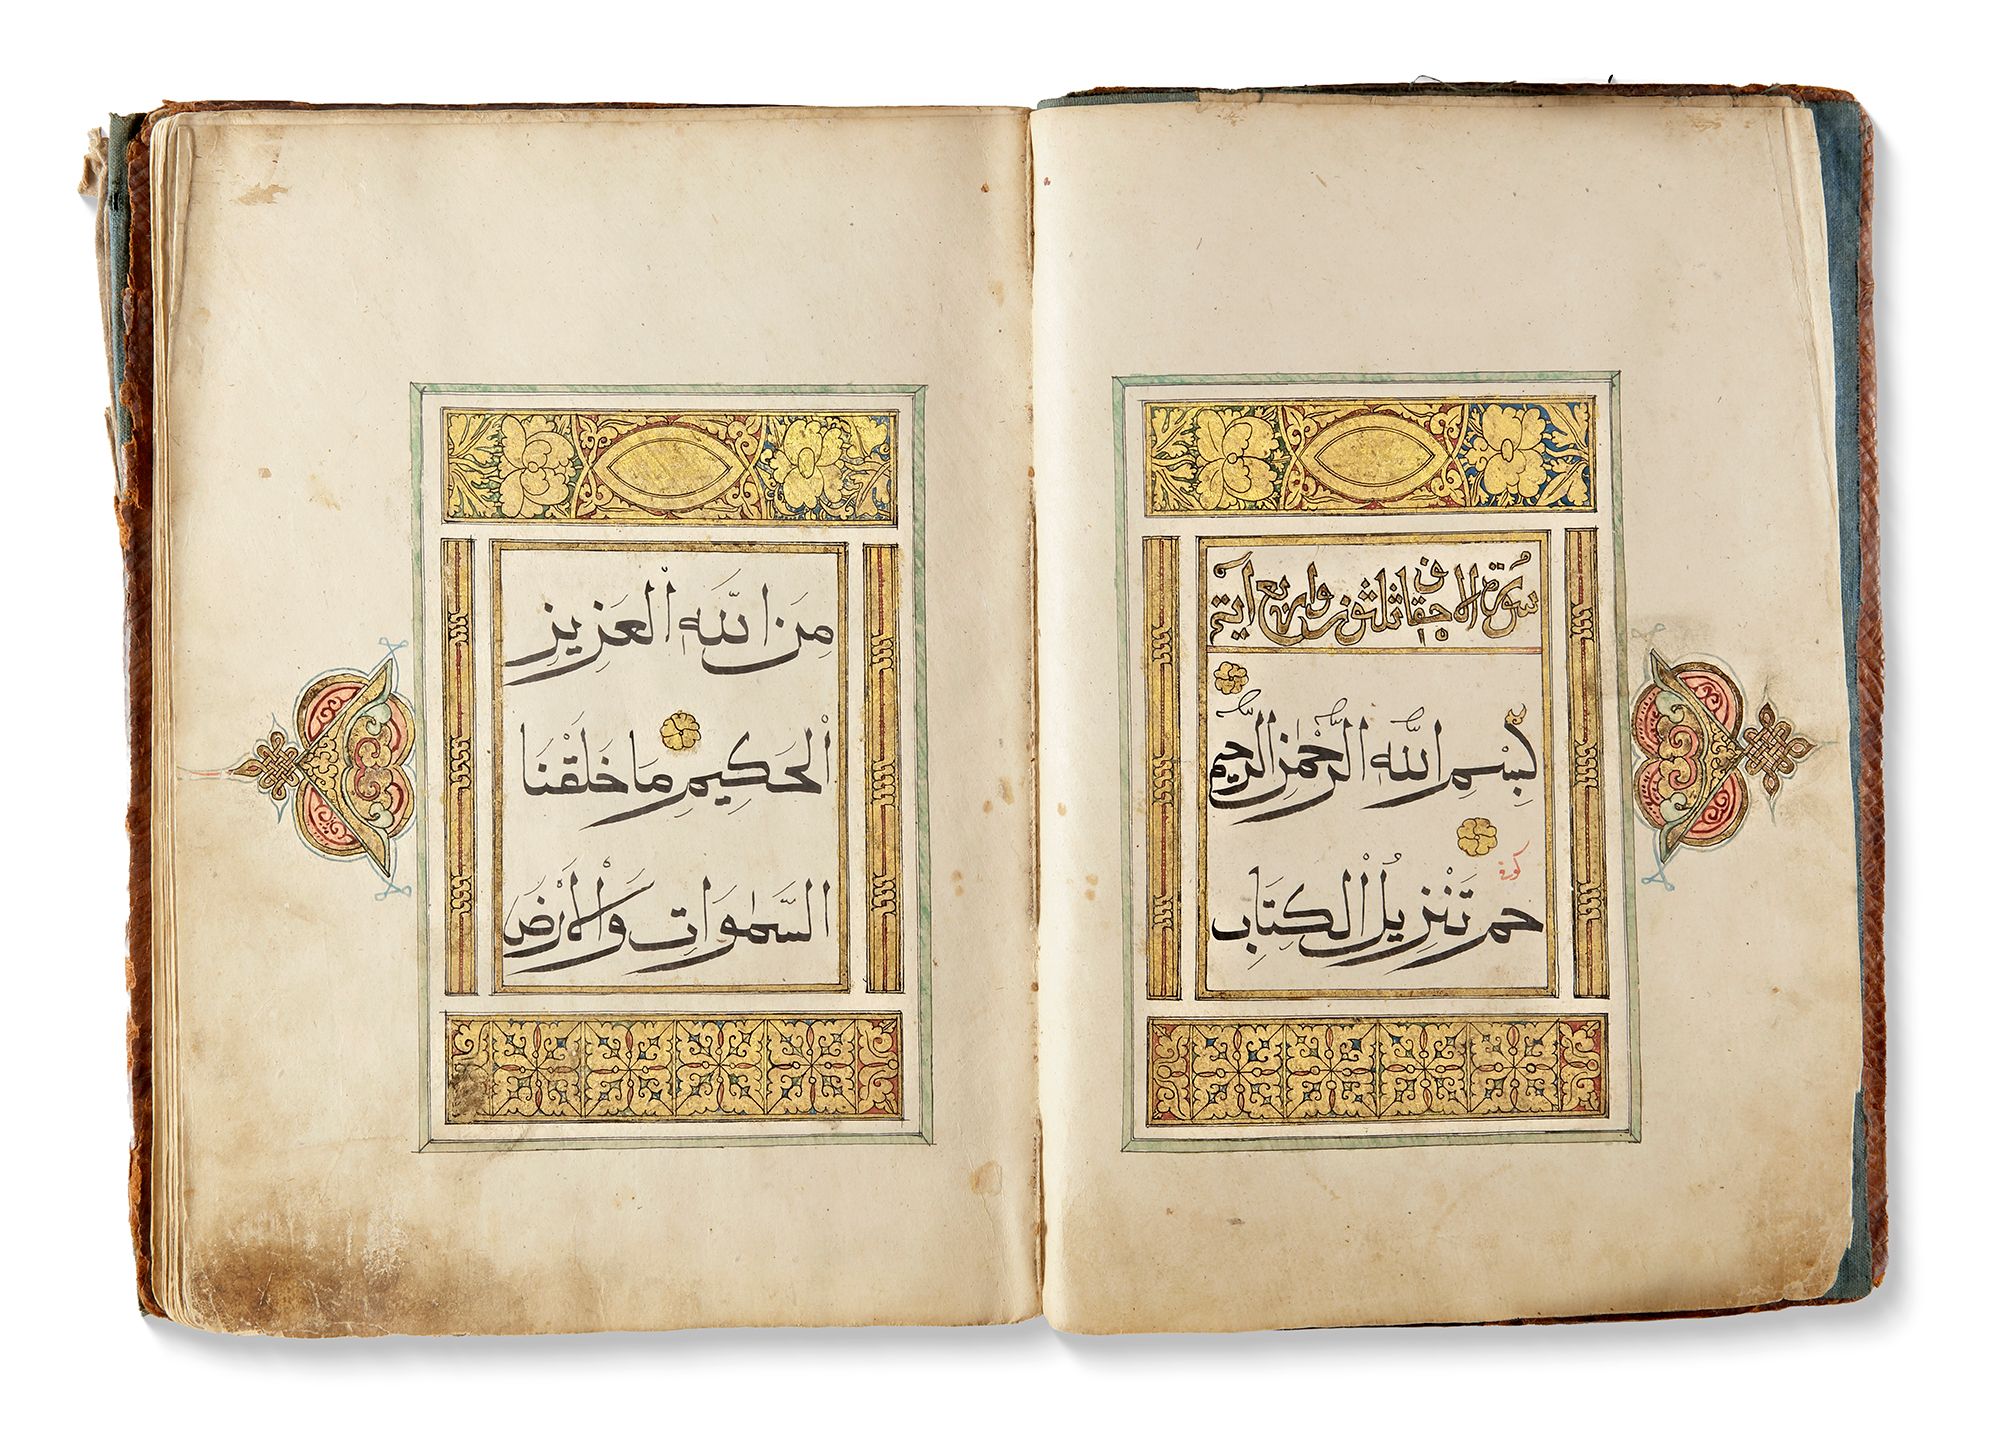 سُورَة الاحقاف ثلثون واربع آية
بِسْمِ اللَّهِ الرَّحْمٰنِ الرَّحِيمِ
حم تَنْزِيلُ الْكِتَابِ
مِنَ اللَّهِ الْعَزِيزِ
الْحَكِيمِ مَا خَلَقْنَا
السَّمٰوَاتِ وَالْأَرْضَ